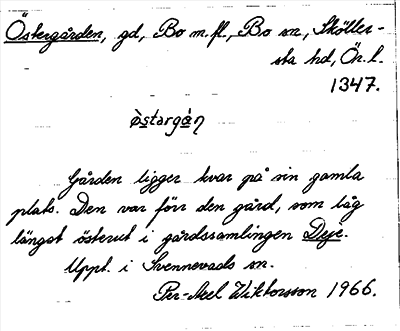 Östergården, gd, Bo m.fl., Bo sn, Sköller-
sta hd, Ör. l.
1347.
östargån
Gården ligger kvar på sin gamla
plats. Den var förr den gård, som låg
längst österut i gårdssamlingen Deje.
Uppt. i Svennevads sn.
Per-Axel Wiktorsson 1966.